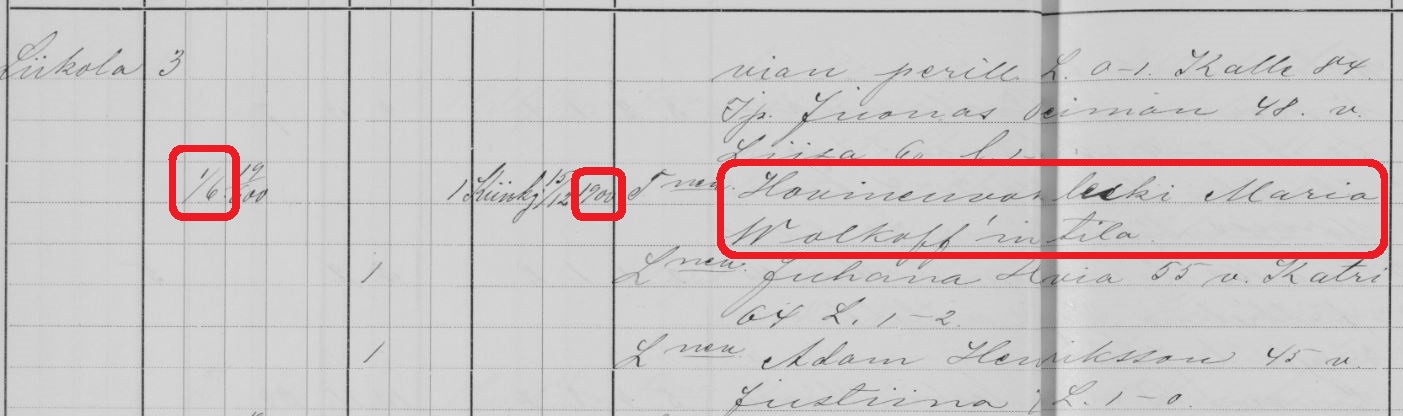 Liikola 3 vian perill. L. 0-1. Kalle 84.
Ip. Juonas Veiman 48. v.
Liisa 60 L 1-
1/6 19/600 1 Kiinkj 15/12 1900 T nen. Hovineuvos leski Maria
Wolkoff'in tila.
1 L nen. Juhana Hvia 55 v. Katri
64 L. 1-2.
1 L nen Adam Henriksson 45 v.
Justiina, L. 1-0.